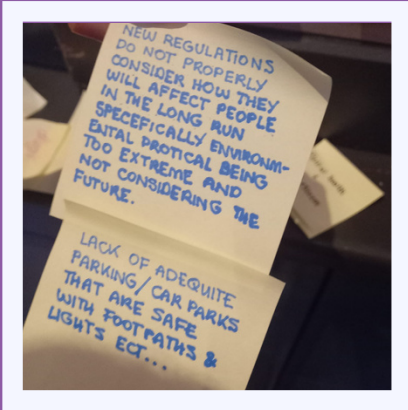 NEW REGULATIONS
DO NOT PROPERLY
CONSIDER HOW THEY
WILL AFFECT PEOPLE
IN THE LONG RUN
SPECEFICALLY ENVIRONM-
ENTAL PROTICAL BEING
TOO EXTREME AND
NOT CONSIDERING THE
FUTURE.
LACK OF ADEQUITE
PARKING/CAR PARKS
THAT ARE SAFE
WITH FOOTPATHS &
LIGHTS ECT...